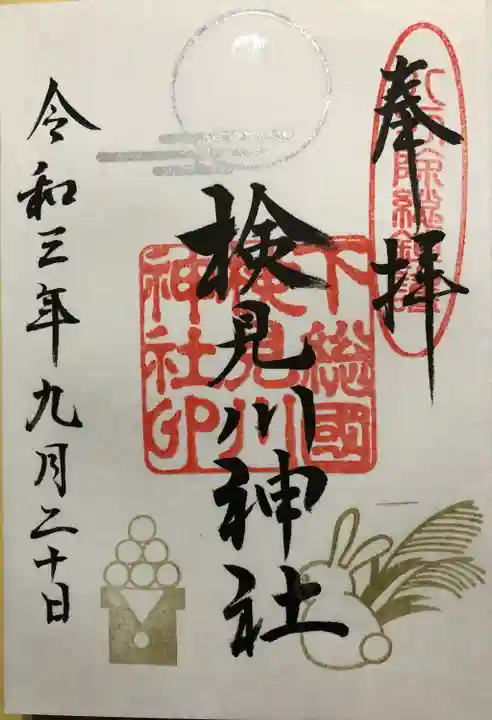 奉拝
八方除総鎮護
検見川神社
下総國
検見川
神社印
令和三年九月二十日